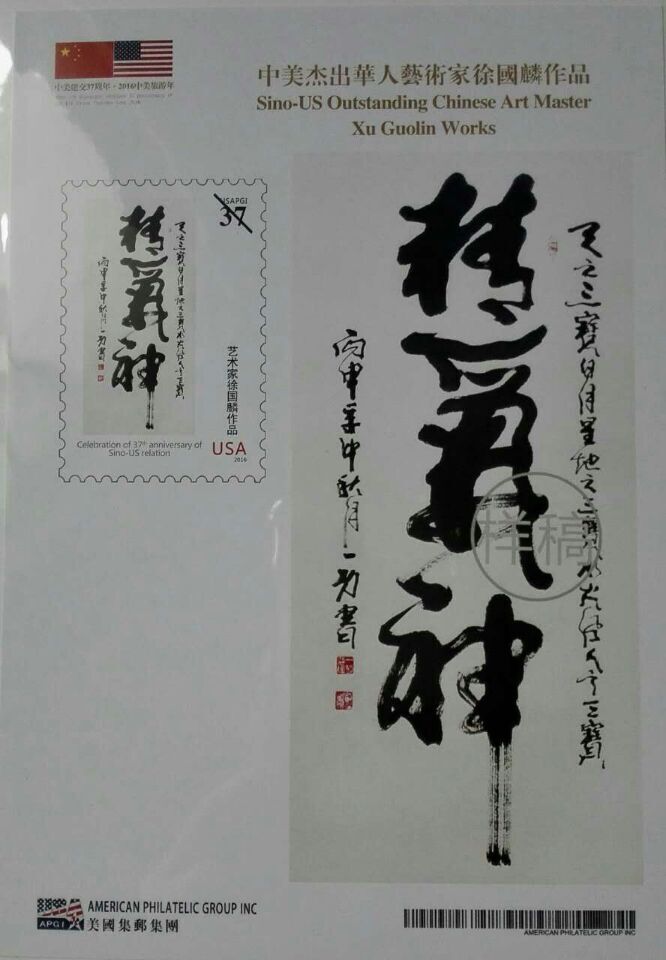 中美建交37周年·2016中美旅游年
中美杰出華人藝術家徐國麟作品
Sino-US Outstanding Chinese Art Master
Xu Guolin Works
USAPGI
37
精氣神
丙申年中秋月一刀書
艺术家徐国麟作品
Celebration of 37th anniversary of
Sino-US relation
USA
2016
天之三寶日月星地之三寶水火風人之三寶
精氣神
丙申年中秋月一刀書
样稿
APGI
AMERICAN PHILATELIC GROUP INC
美國集郵集團
AMERICAN PHILATELIC GROUP INC